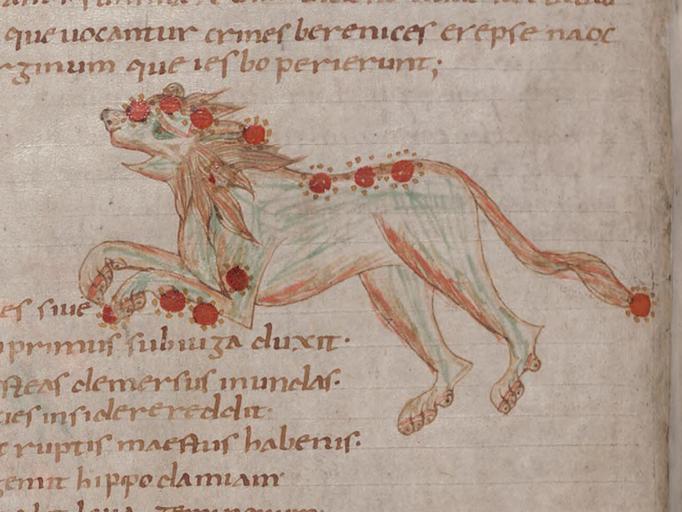 que uocantur crines berenices erepse naoc
rginum que iesbo perierunt;
es siue
primus subiuga duxit.
steas demersus inundas.
ies insidere reddit.
t ruptis maestus habenis.
genit hippodamiam